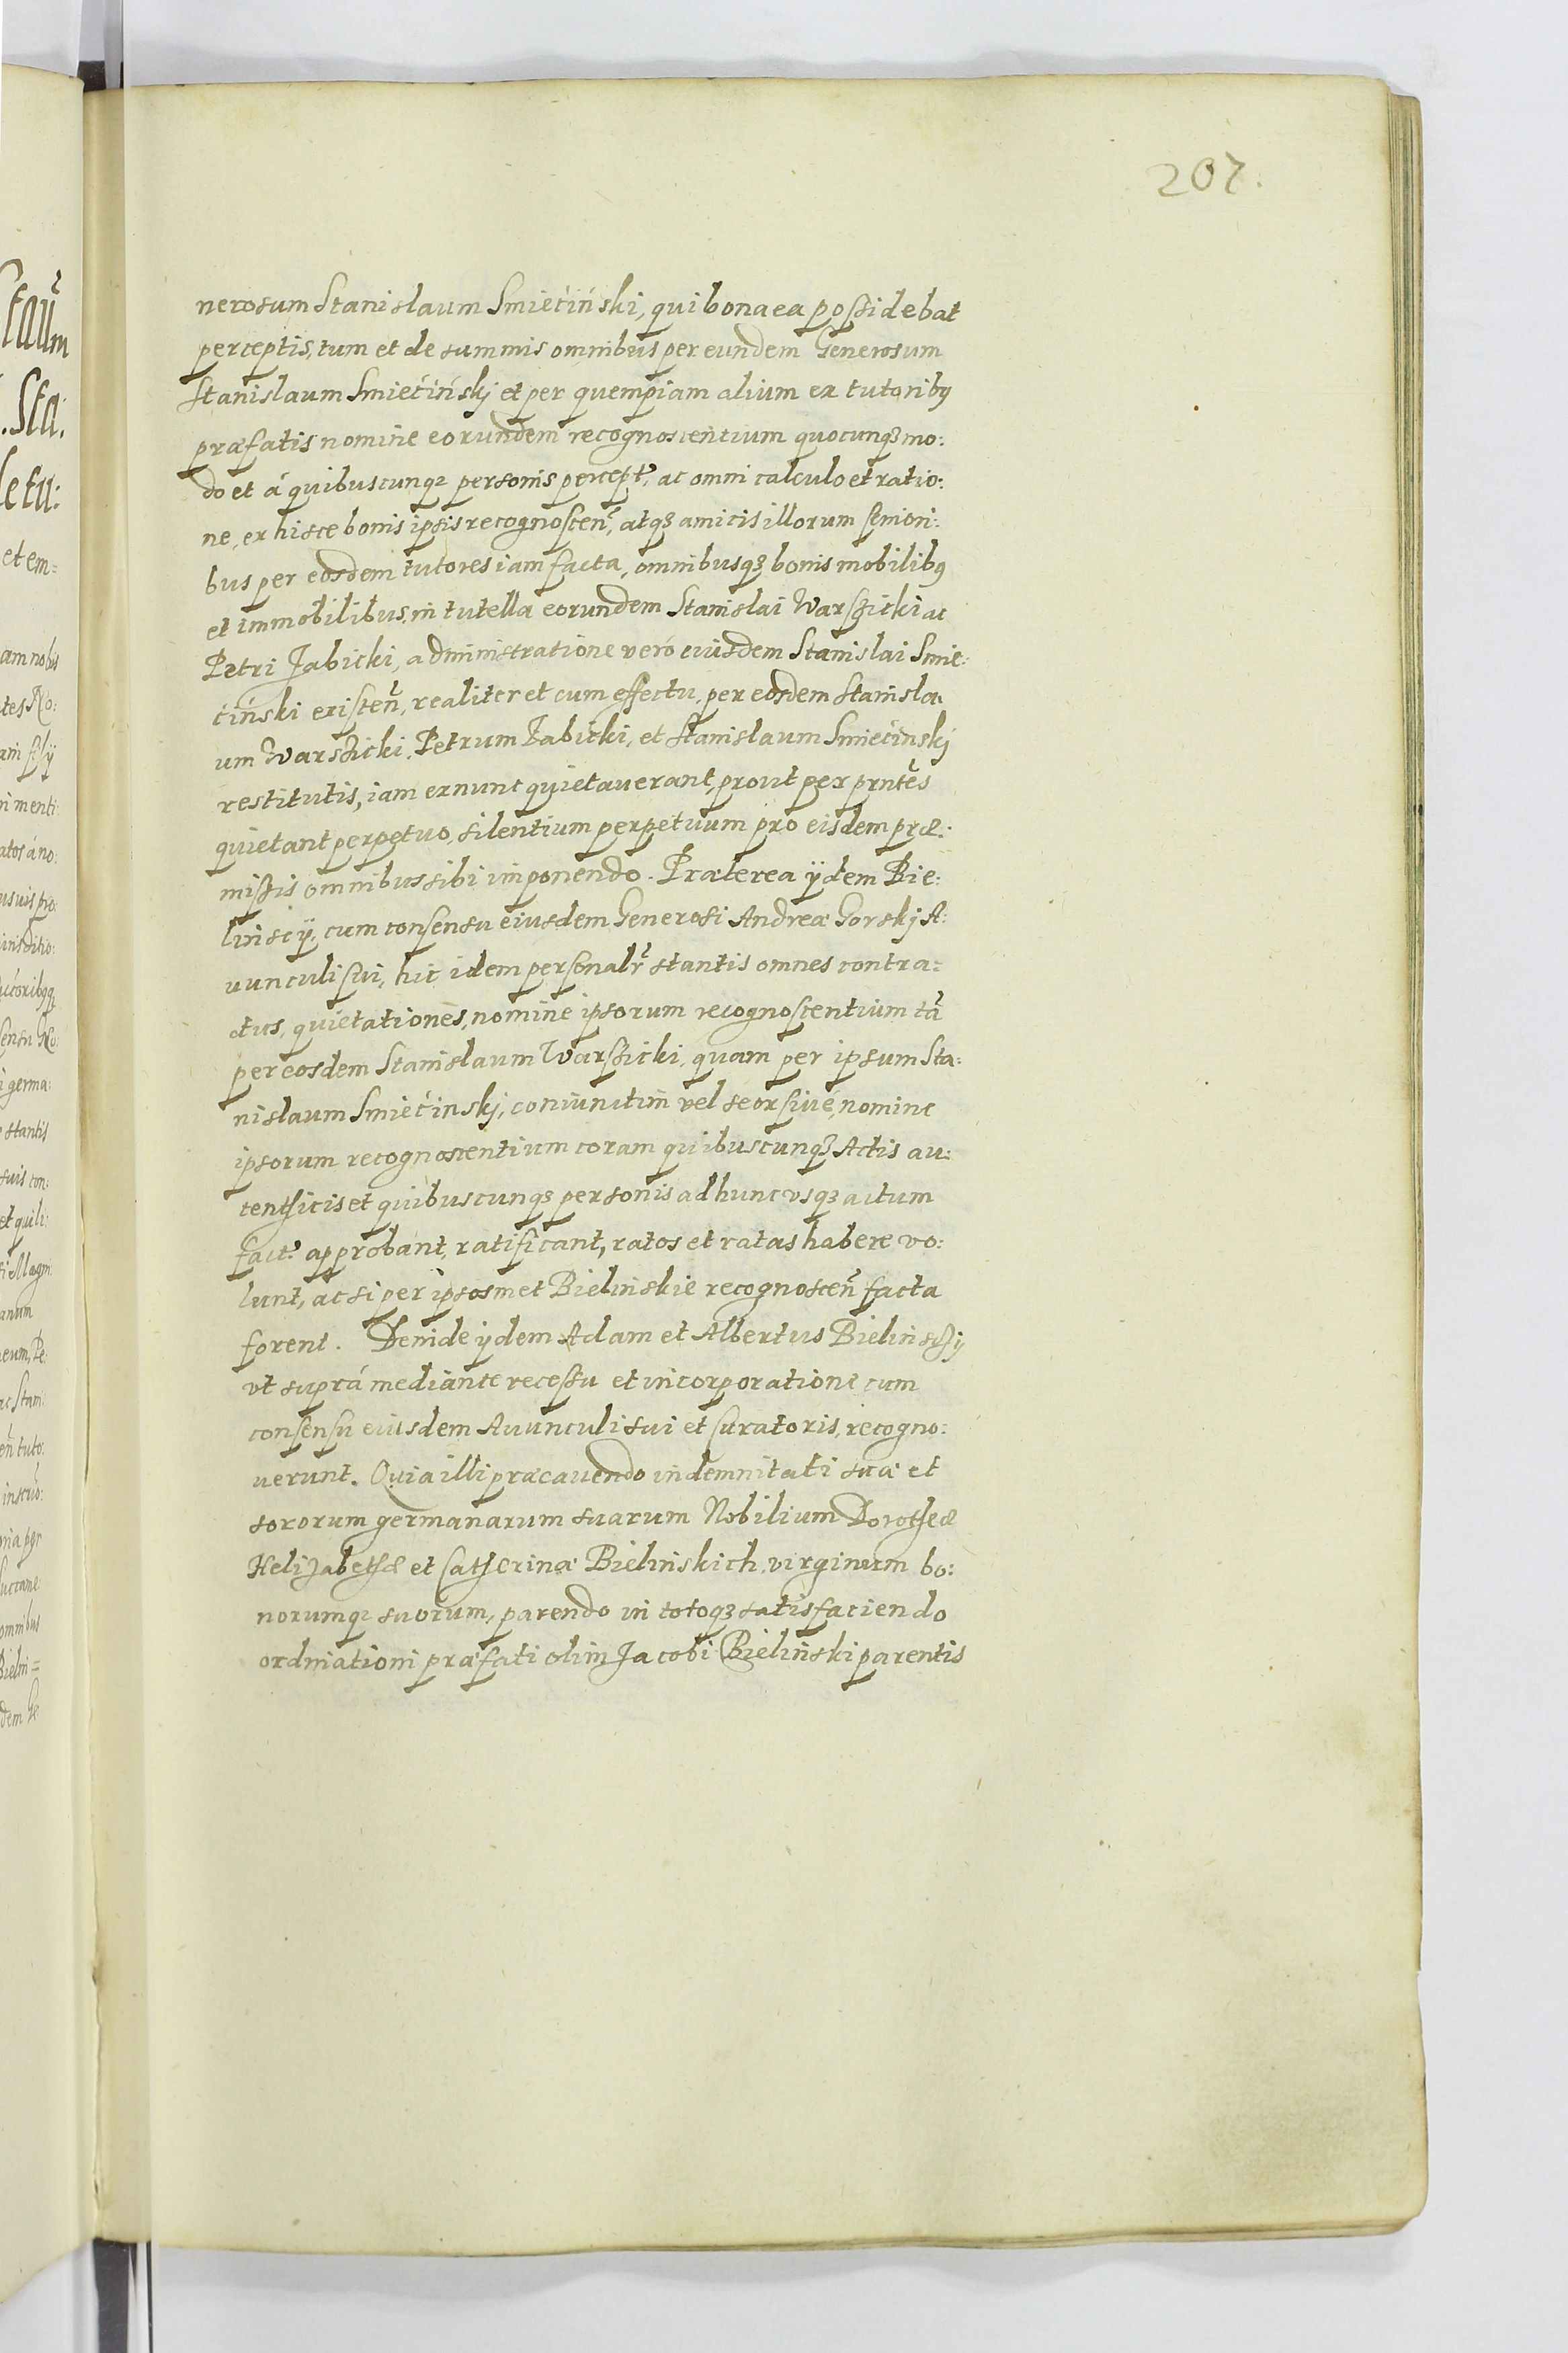 207.
nerosum Stanislaum Smiećiński, qui bona ea possidebat
perceptis, tum et de summis omnibus per eundem Generosum
Stanislaum Smiećińskj et per quempiam alium ex tutoribꝯ
præfatis nomine eorundem recognoscentium quocunqꝫ mo:
do et á quibuscunqꝫ personis percept: ac omni calculo et ratio:
ne, ex hisce bonis ipsis recognosceñ, atqꝫ amicis illorum seniori:
bus per eosdem tutores iam facta, omnibusqꝫ bonis mobilibꝯ
et immobilibus, in tutella eorundem Stanislai Warszicki ac
Petri Jabicki, administratione veró eiusdem Stanislai Smie:
ćiński existeñ, realiter et cum effectu, per eosdem Stanisla
um Warszicki, Petrum Jabicki, et Stanislaum Smiećinskj
restitutis, iam ex nunc quietaverant, prout per prntes
quietant perpetuo, silentium perpetuum pro eisdem præ:
missis omnibus sibi imponendo. Præterea ÿdem Bie:
linscÿ, cum consensu eiusdem Generosi Andreæ Gorskj A:
uunculi sui, hic idem personalr stantis omnes contra=
ctus, quietationes, nomine ipsorum recognoscentium tã
per eosdem Stanislaum Warszicki, quam per ipsum Sta:
nislaum Smiećinskj, coniunctim vel seorsiué, nomine
ipsorum recognoscentium coram quibuscunqꝫ Actis au:
tenthicis et quibuscunqꝫ personis ad hunc vsqꝫ actum
fact: approbant, ratificant, ratos et ratas habere vo:
lunt, ac si per ipsosmet Bielinskie recognosceñ facta
forent. Deinde ÿdem Adam et Albertus Bielinschÿ
vt suprá mediante recessu et incorporatione cum
consensu eiusdem Auunculi sui et Curatoris, recogno:
uerunt. Quia illi præcauendo indemnitati suæ et
sororum germanarum suarum Nobilium Dorotheæ
Helizabethæ et Catherinæ Bielinskich, virginum bo:
norumqꝫ suorum, parendo in totoqꝫ satisfaciendo
ordinationi præfati olim Jacobi Bielinski parentis